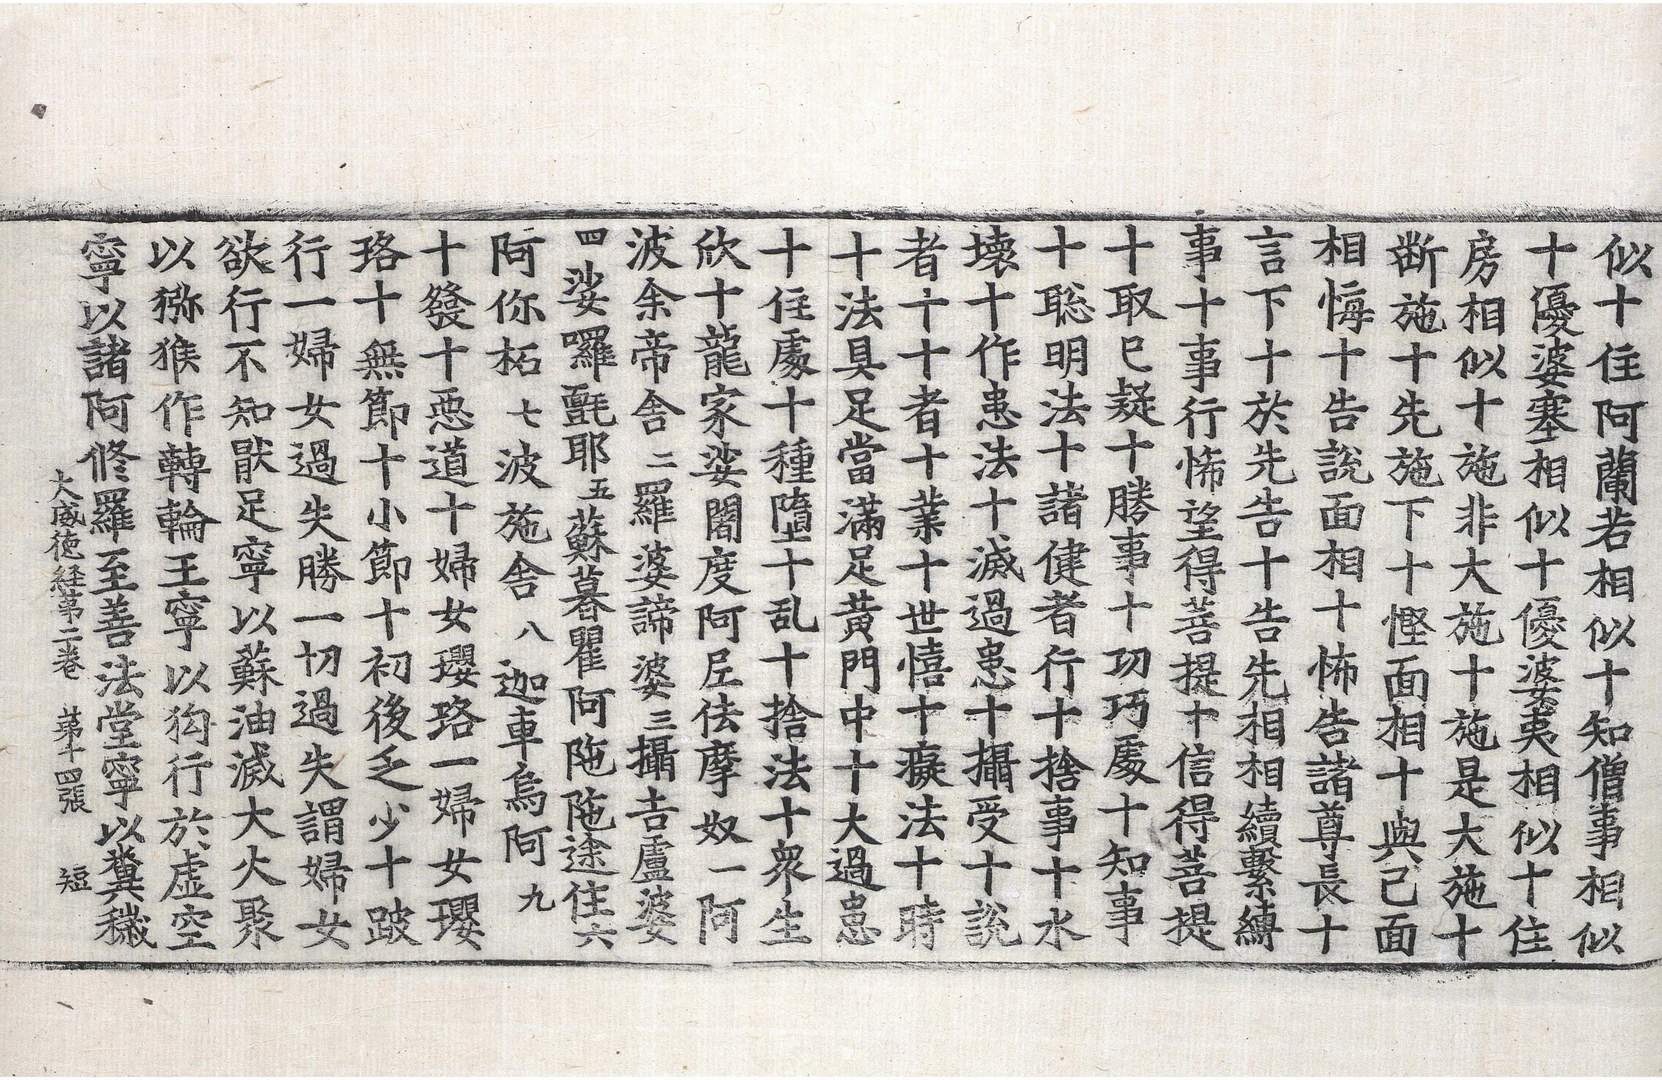 似十住阿蘭若相似十知僧事相似
十優婆塞相似十優婆夷相似十住
房相似十施非大施十施是大施十
斷施十先施下十慳面相十與己面
相悔十告説面相十怖告諸尊長十
言下十於先告十告先相相續繫縛
事十事行怖望得菩提十信得菩提
十取已疑十勝事十功巧處十知事
十聡明法十諸健者行十捨事十水
壊十作恚法十滅過恚十攝受十説
者十十者十業十世憘十癡法十時
十法具足當滿足黄門中十大過恚
十住處十種墮十乱十捨法十衆生
欣十龍家娑闍度阿𡰱佉摩奴一阿
波余帝舎二羅婆諦婆三攝吉盧婆
四娑囉氎耶五蘇暮瞿阿陁陁途住六
阿你柘七波施舎八迦車烏阿九
十發十惡道十婦女瓔珞一婦女瓔
珞十無節十小節十初後乏少十跛
行一婦女過失勝一切過失謂婦女
欲行不知猒足寧以蘇油滅大火聚
以獼猴作轉輪王寧以狗行於虛空
寧以諸阿修羅至善法堂寧以糞穢
大威徳経第二巻 第十四張 短